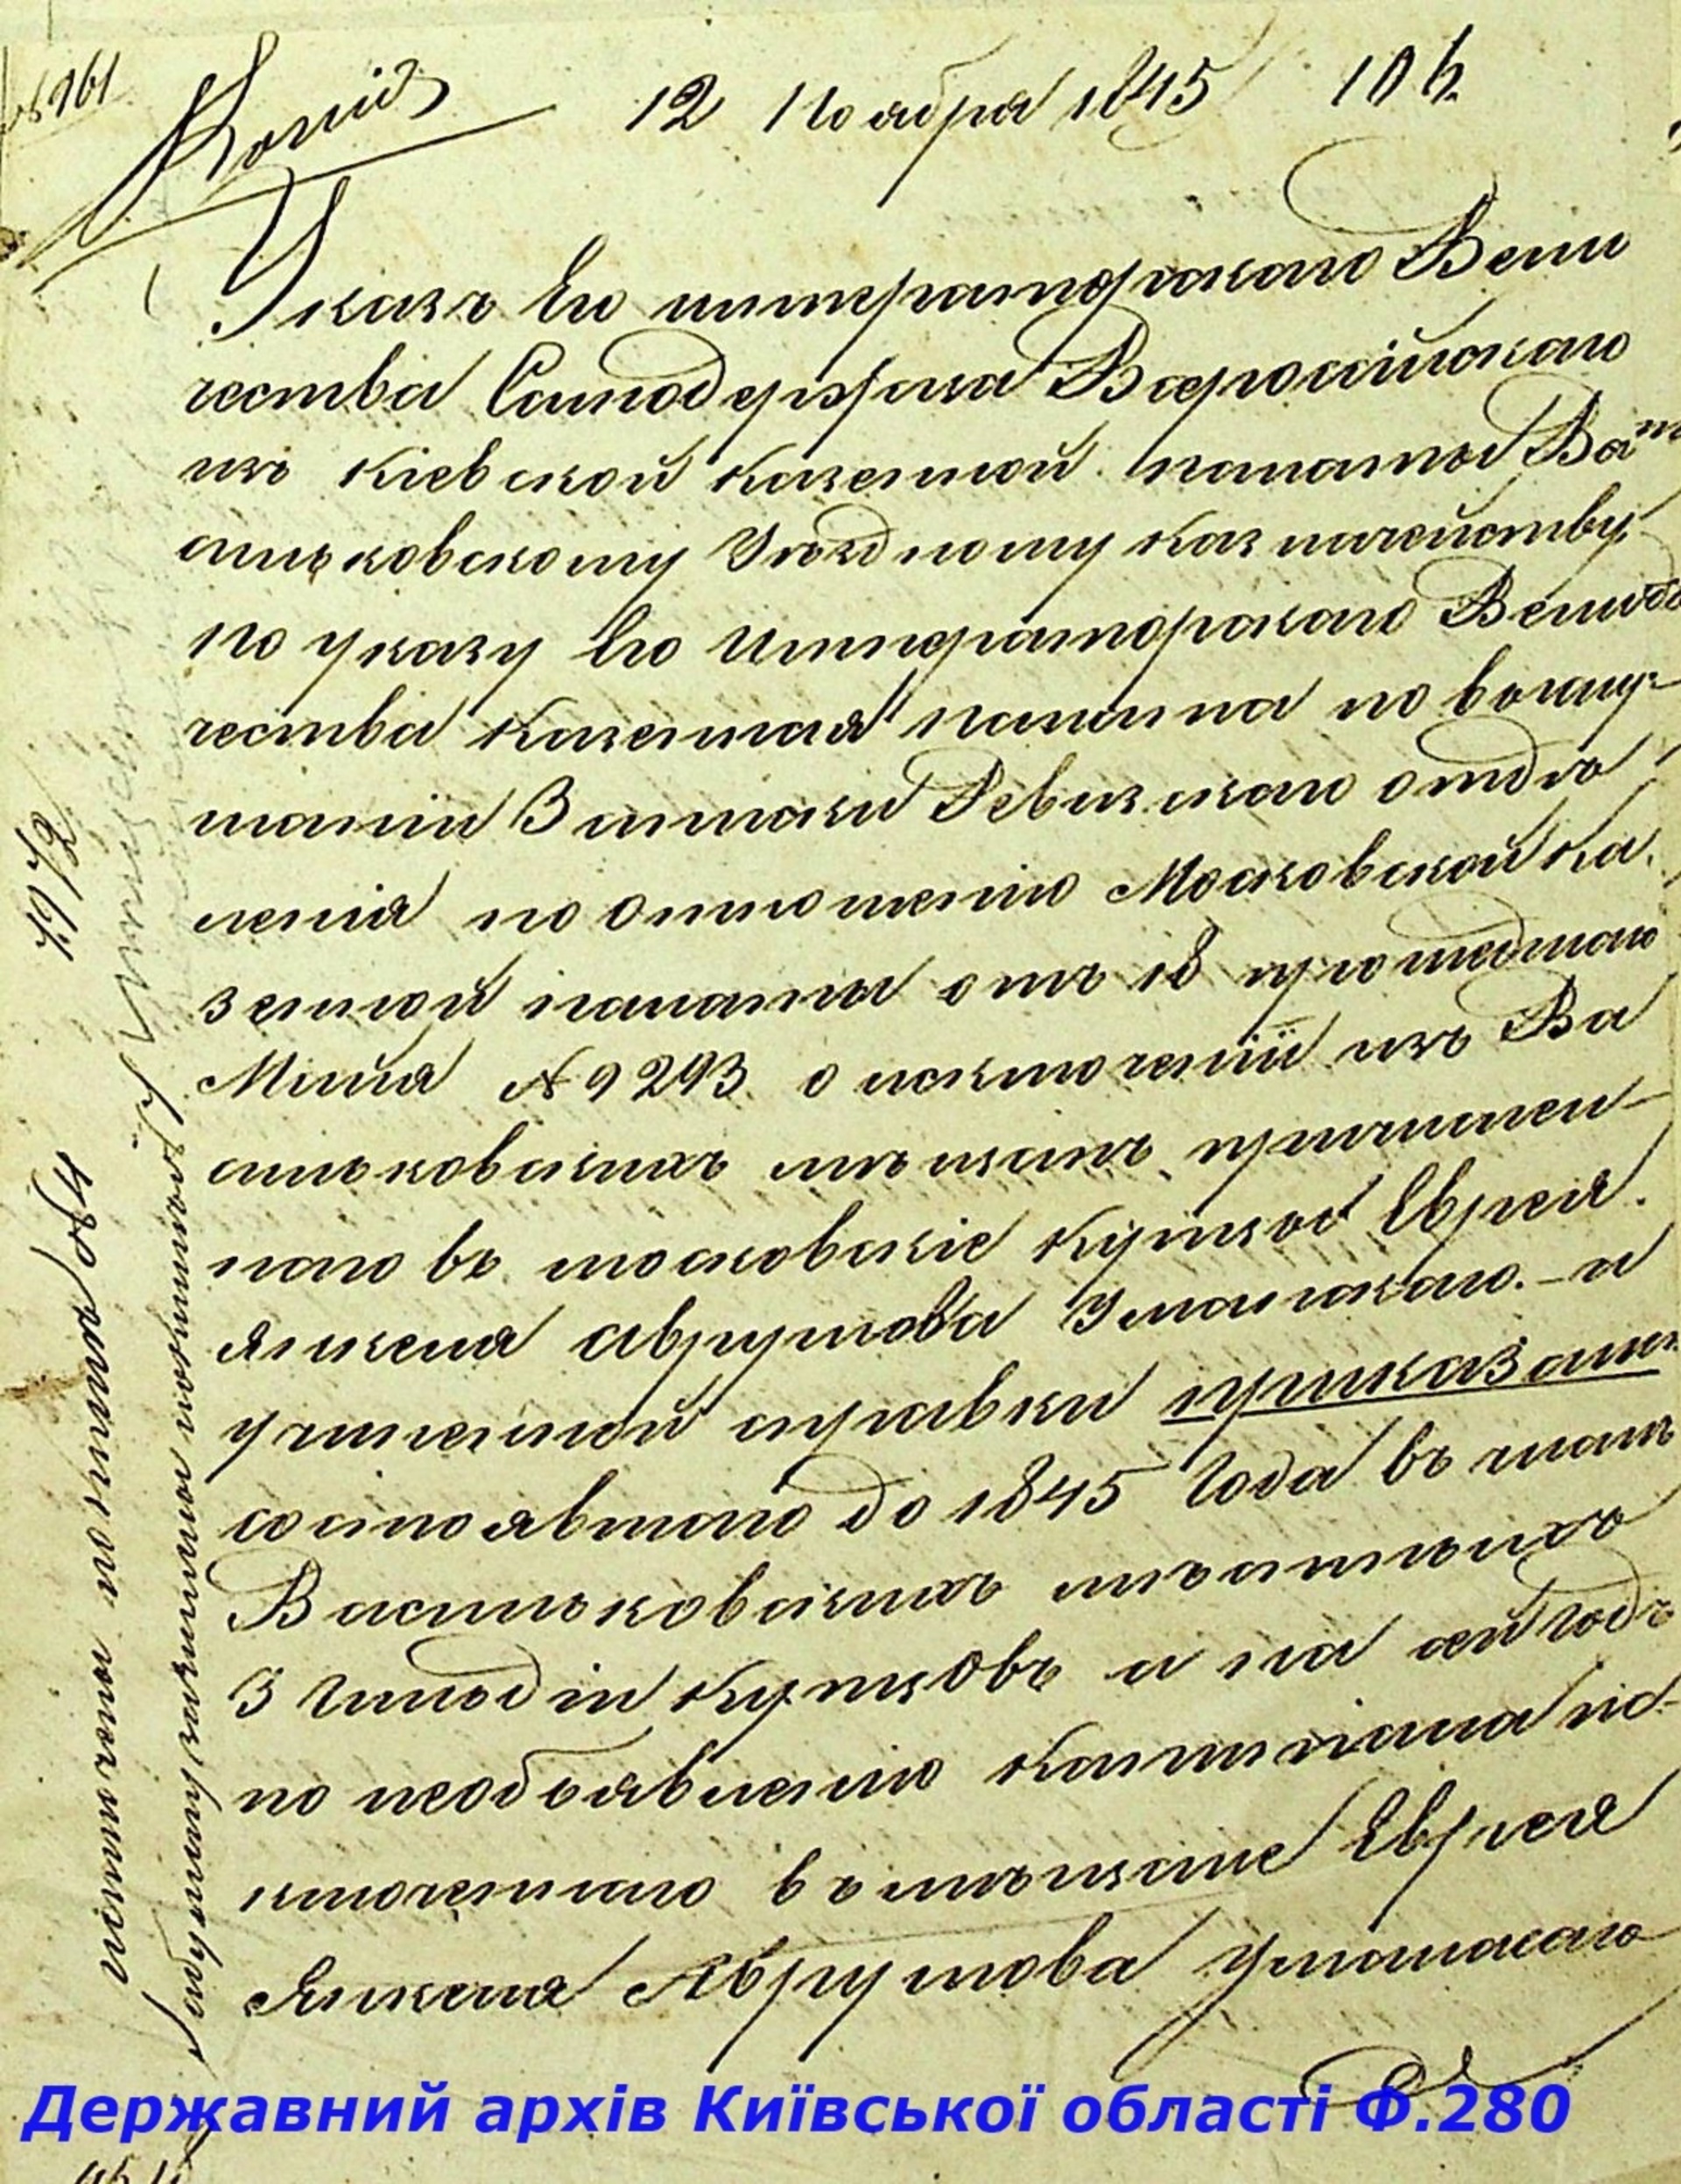 Копія
12 Ноября 1845 106.
Указъ Его императорскаго Вели
чества Самодержца Всероссійскаго
изъ Кіевской Казенной палаты Ва
сильковскому Уѣздному Казначейству
по указу Его Императорскаго Вели
чества Казенная палата по выслу-
шаніи Записки Ревизскаго отдѣ
ленія по отношенію Московской Ка
зенной палаты отъ 18 прошедшаго
Маія № 9293 о исключеніи изъ Ва
сильковскихъ мѣщанъ причислен-
наго въ московскіе купцы Еврея
Янкеля Аврумова Уманскаго. – а
учиненной справки приказали:
состоявшаго до 1845 Года въ числѣ
Васильковскихъ мѣстныхъ
3 Гильдіи купцовъ а на сей годъ
по необъявленію капитала пе-
ключеннаго въ мѣщане Еврея
Янкеля Аврумова Уманскаго
Державний архів Київської області Ф.280